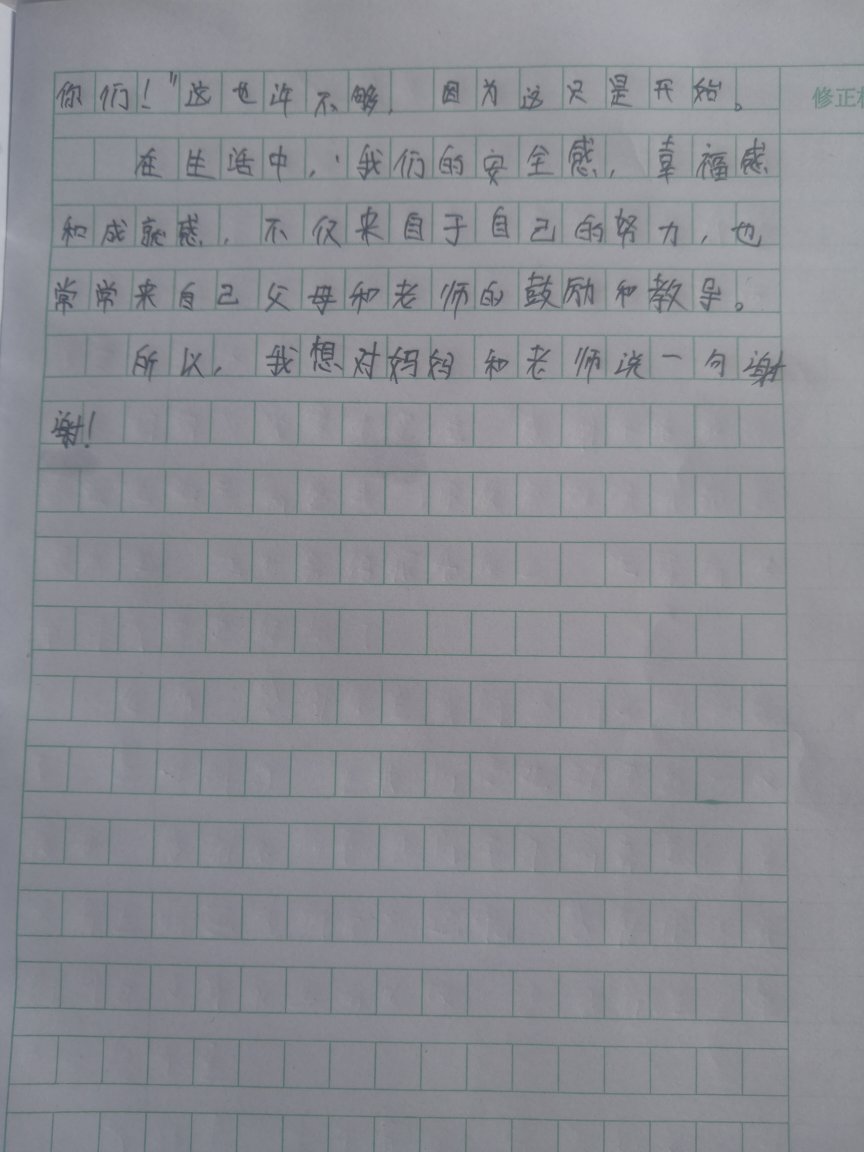 你们！”这也许不够，因为这只是开始。
在生活中，我们的安全感，幸福感
和成就感，不仅来自于自己的努力，也
常常来自己父母和老师的鼓励和教导。
所以，我想对妈妈和老师说一句谢
谢！
修正